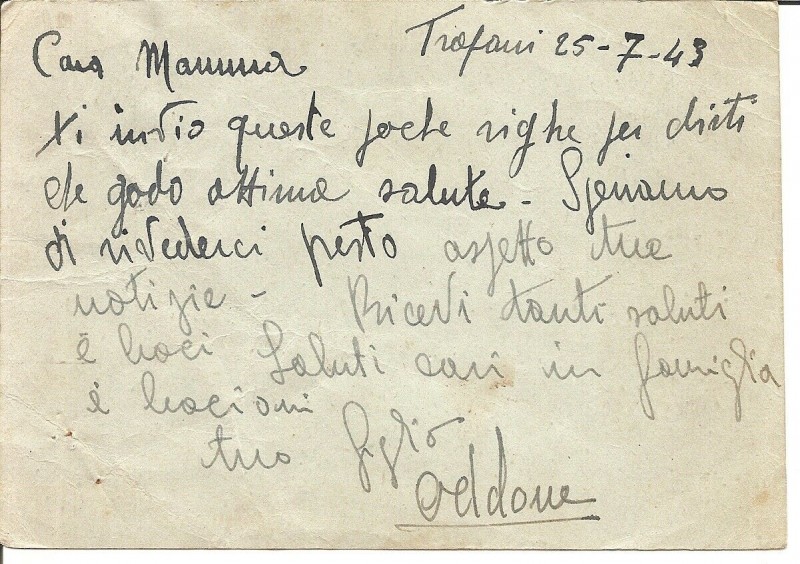 Trapani 25-7-43
Cara Mamma
Ti invio queste poche righe per dirti
che godo ottima salute - Speriamo
di rivederci presto aspetto tue
notizie - Ricevi tanti saluti
e baci Saluti cari in famiglia
e bacioni
tuo figlio
Oddone